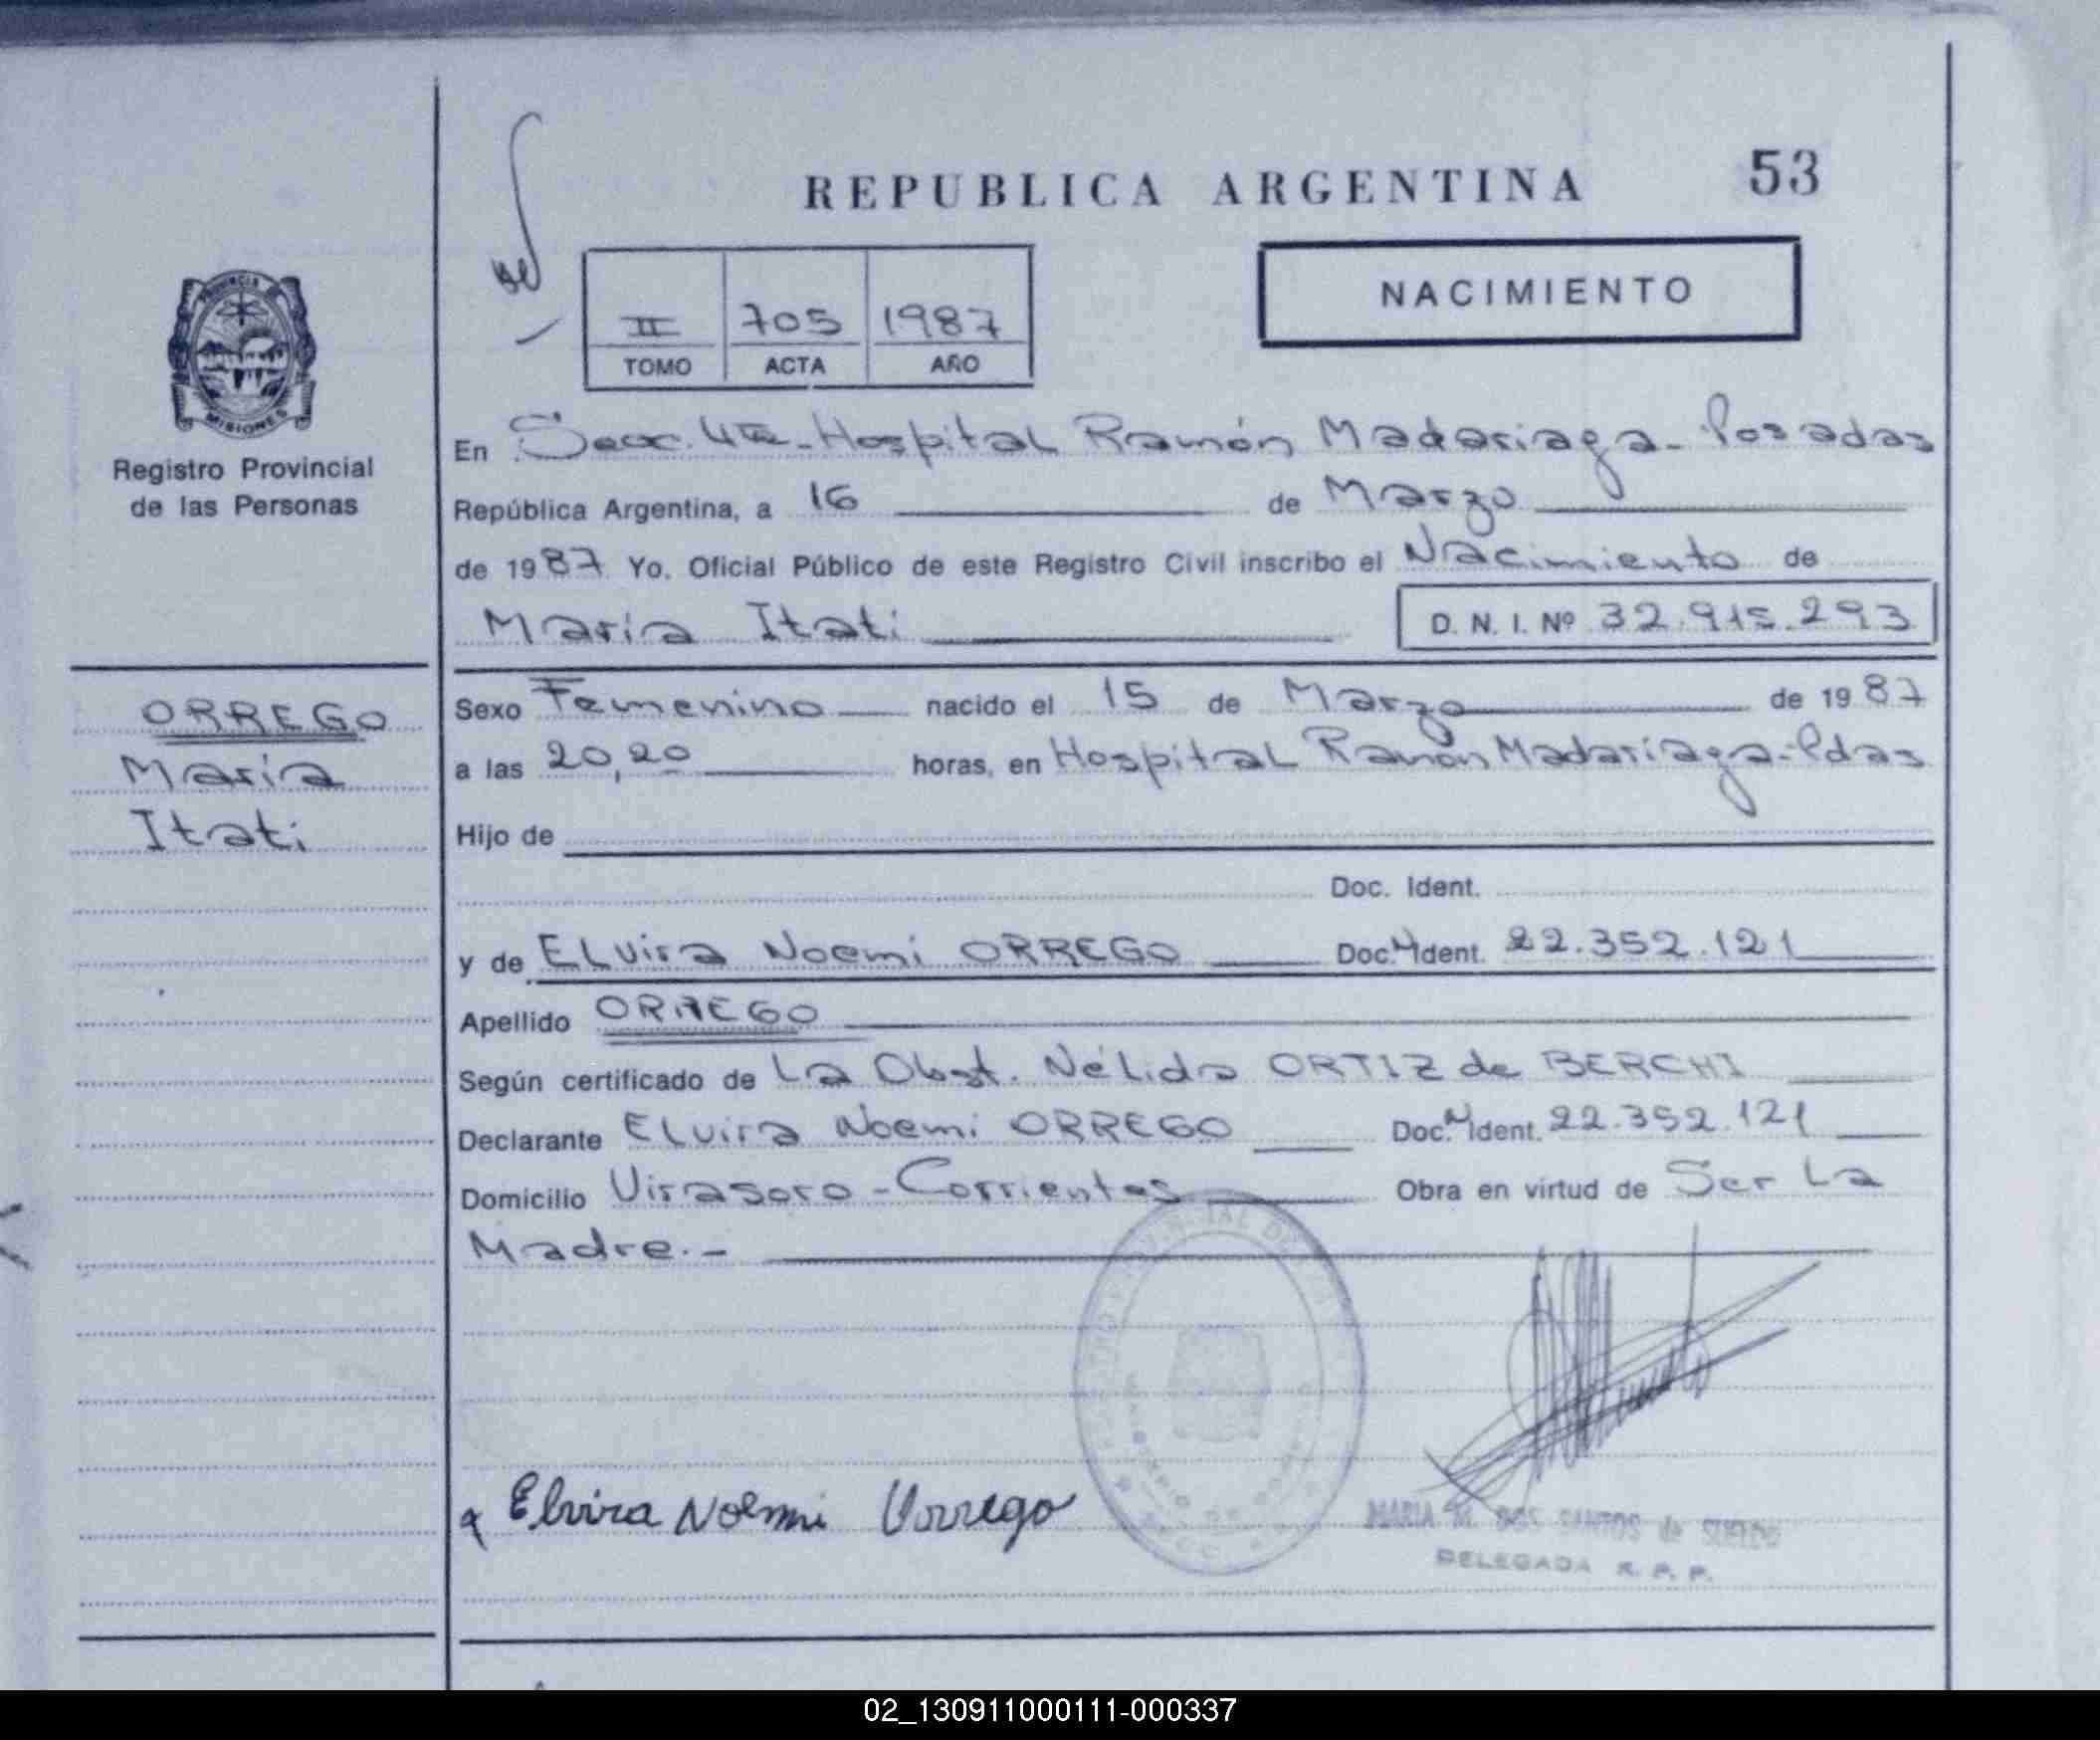 REPUBLICA ARGENTINA
53
II 705 1987
TOMO ACTA AÑO
NACIMIENTO
PROVINCIA DE
MISIONES
Registro Provincial
de las Personas
En Secc. 4ta - Hospital Ramón Madariaga - Posadas
República Argentina, a 16 de Marzo
de 1987 Yo, Oficial Público de este Registro Civil inscribo el Nacimiento de
María Itati D. N. I. Nº 32.915.293
ORREGO
María
Itati
Sexo Femenino nacido el 15 de Marzo de 1987
a las 20,20 horas, en Hospital Ramón Madariaga - Pdas
Hijo de
Doc. Ident.
y de ELvira Noemi ORREGO Doc. Ident. 22.352.121
Apellido ORREGO
Según certificado de La Obst. Nélida ORTIZ de BERCHI
Declarante ELvira Noemi ORREGO Doc. Ident. 22.352.121
Domicilio Virasoro - Corrientes Obra en virtud de Ser La
Madre.-
Elvira Noemi Orrego
MARIA M. DOS SANTOS de SUELDO
DELEGADA R. P. P.
02_130911000111-000337